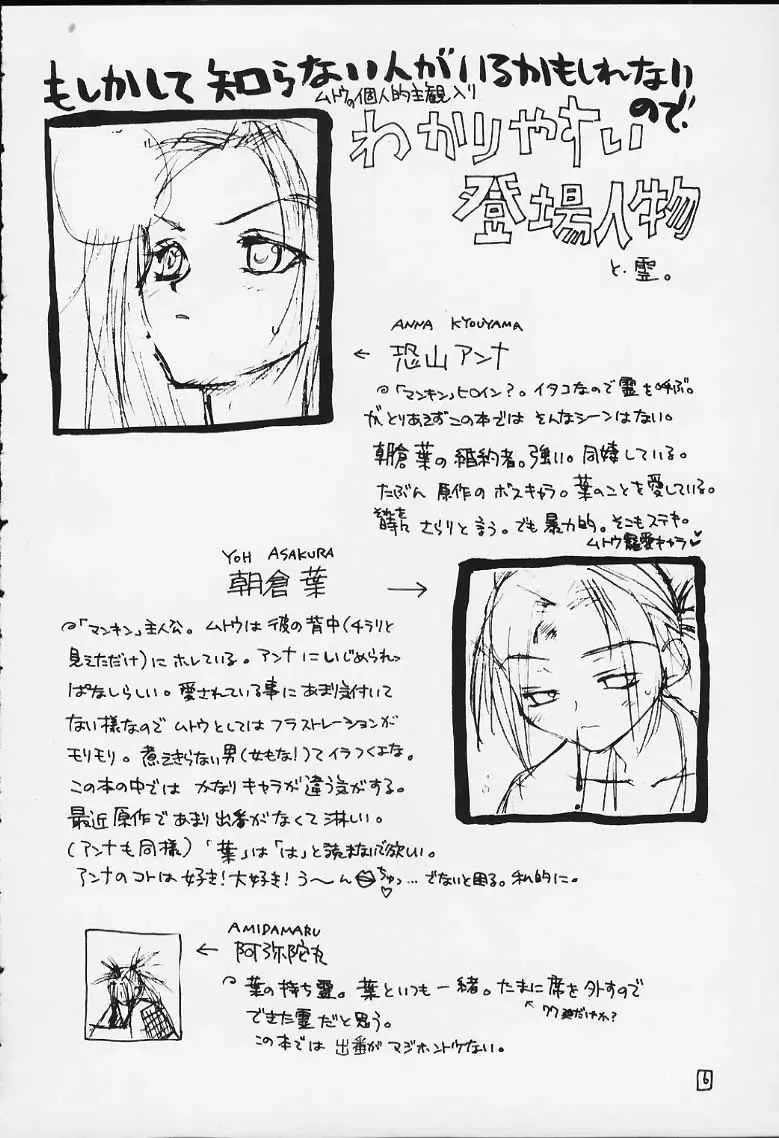 もしかして知らない人がいるかもしれない
ので!
ムトウの個人的主観入り
わかりやすい
登場人物
と、霊。
ANNA KYOUYAMA
← 恐山アンナ
「マンキン」ヒロイン?。イタコなので霊を呼ぶ。
がとりあえずこの本では そんなシーンはない。
朝倉葉の婚約者。強い。同棲している。
たぶん 原作のボスキャラ。葉のことを愛している。
それを
時に さらりと言う。でも暴力的。そこもステキ。
ムトウ寵愛キャラ♥
YOH ASAKURA
朝倉 葉 →
「マンキン」主人公。ムトウは彼の背中(チラリと
見えただけ)にホレている。アンナにいじめられっ
ぱなしらしい。愛されている事にあまり気付いて
ない様なのでムトウとしてはフラストレーションが
モリモリ。煮えきらない男(女もな!)てイラつくよな。
この本の中では かなりキャラが違う気がする。
最近原作であまり出番がなくて淋しい。
(アンナも同様)「葉」は「は」と読まないで欲しい。
アンナのコトは好き!大好き!う〜んちゅっ♡…でないと困る。私的に。
AMIDAMARU
← 阿弥陀丸
葉の持ち霊。葉といつも一緒。たまに席を外すので
できた霊だと思う。
だけか?
この本では 出番がマジホントウない。
6